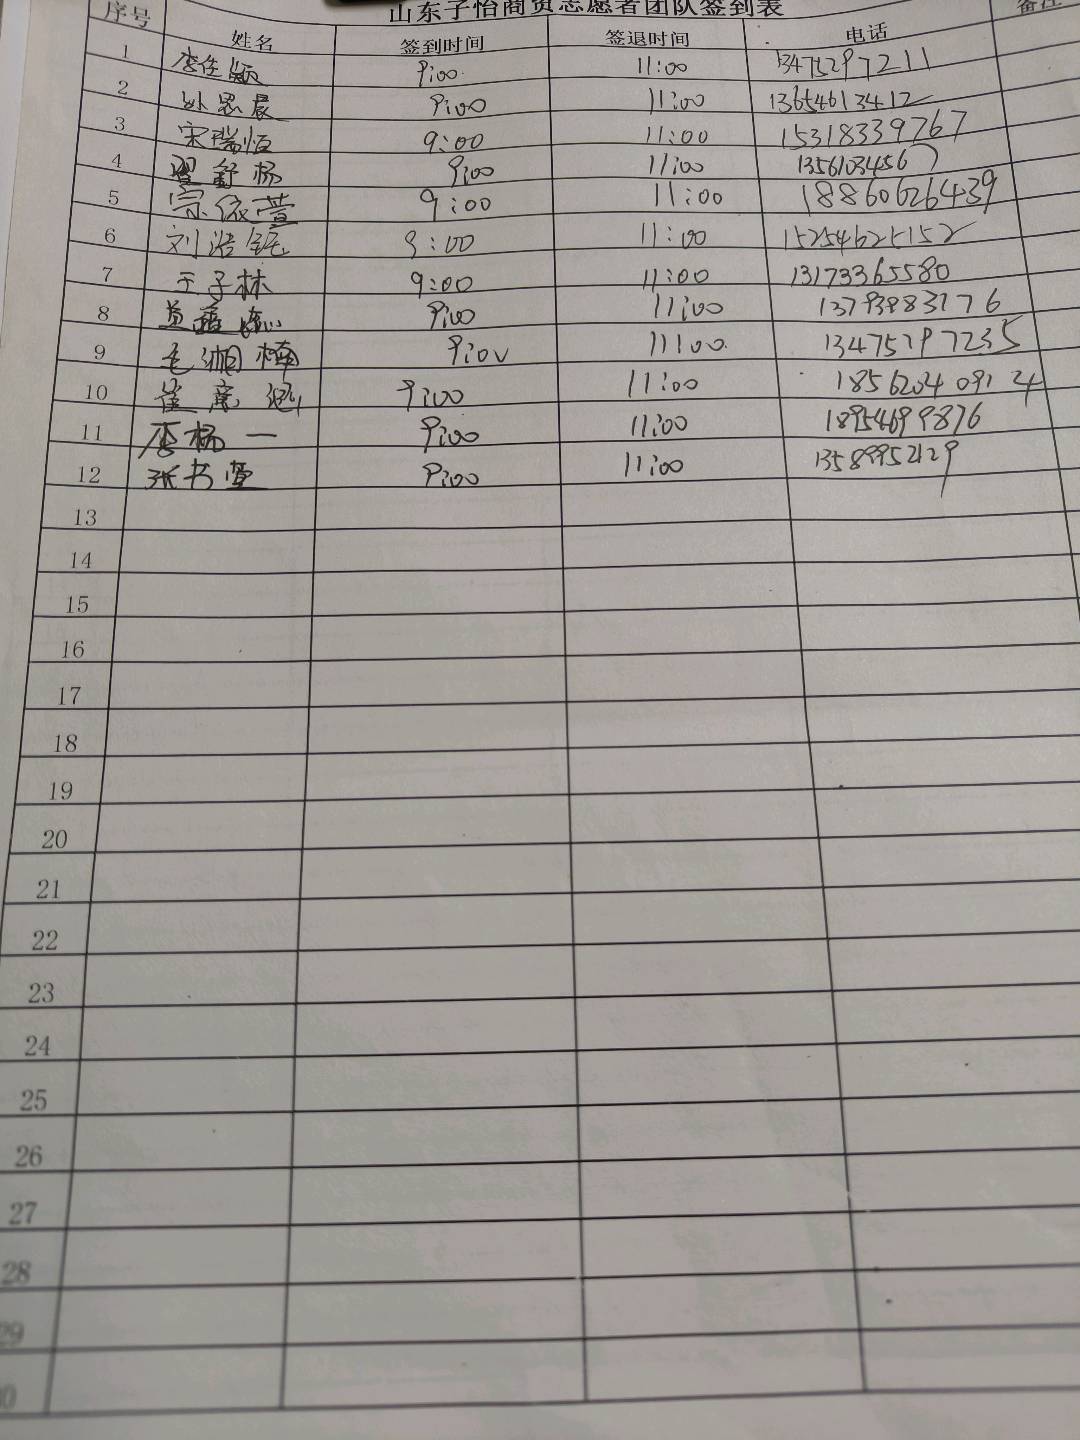 山东子怡商贸志愿者团队签到表
序号 姓名 签到时间 签退时间 电话 备注
1 李佳颖 9:00 11:00 13475297211
2 9:00 11:00 13654613412
3 宋瑞恒 9:00 11:00 15318339767
4 翟舒杨 9:00 11:00 13561034567
5 宗依萱 9:00 11:00 18860626439
6 刘浩铭 9:00 11:00 15254625152
7 王子林 9:00 11:00 13173365580
8 9:00 11:00 13793883176
9 毛湘楠 9:00 11:00 13475297235
10 崔 9:00 11:00 185620409124
11 李杨一 9:00 11:00 18954699876
12 张书萱 9:00 11:00 13589952129
13
14
15
16
17
18
19
20
21
22
23
24
25
26
27
28
29